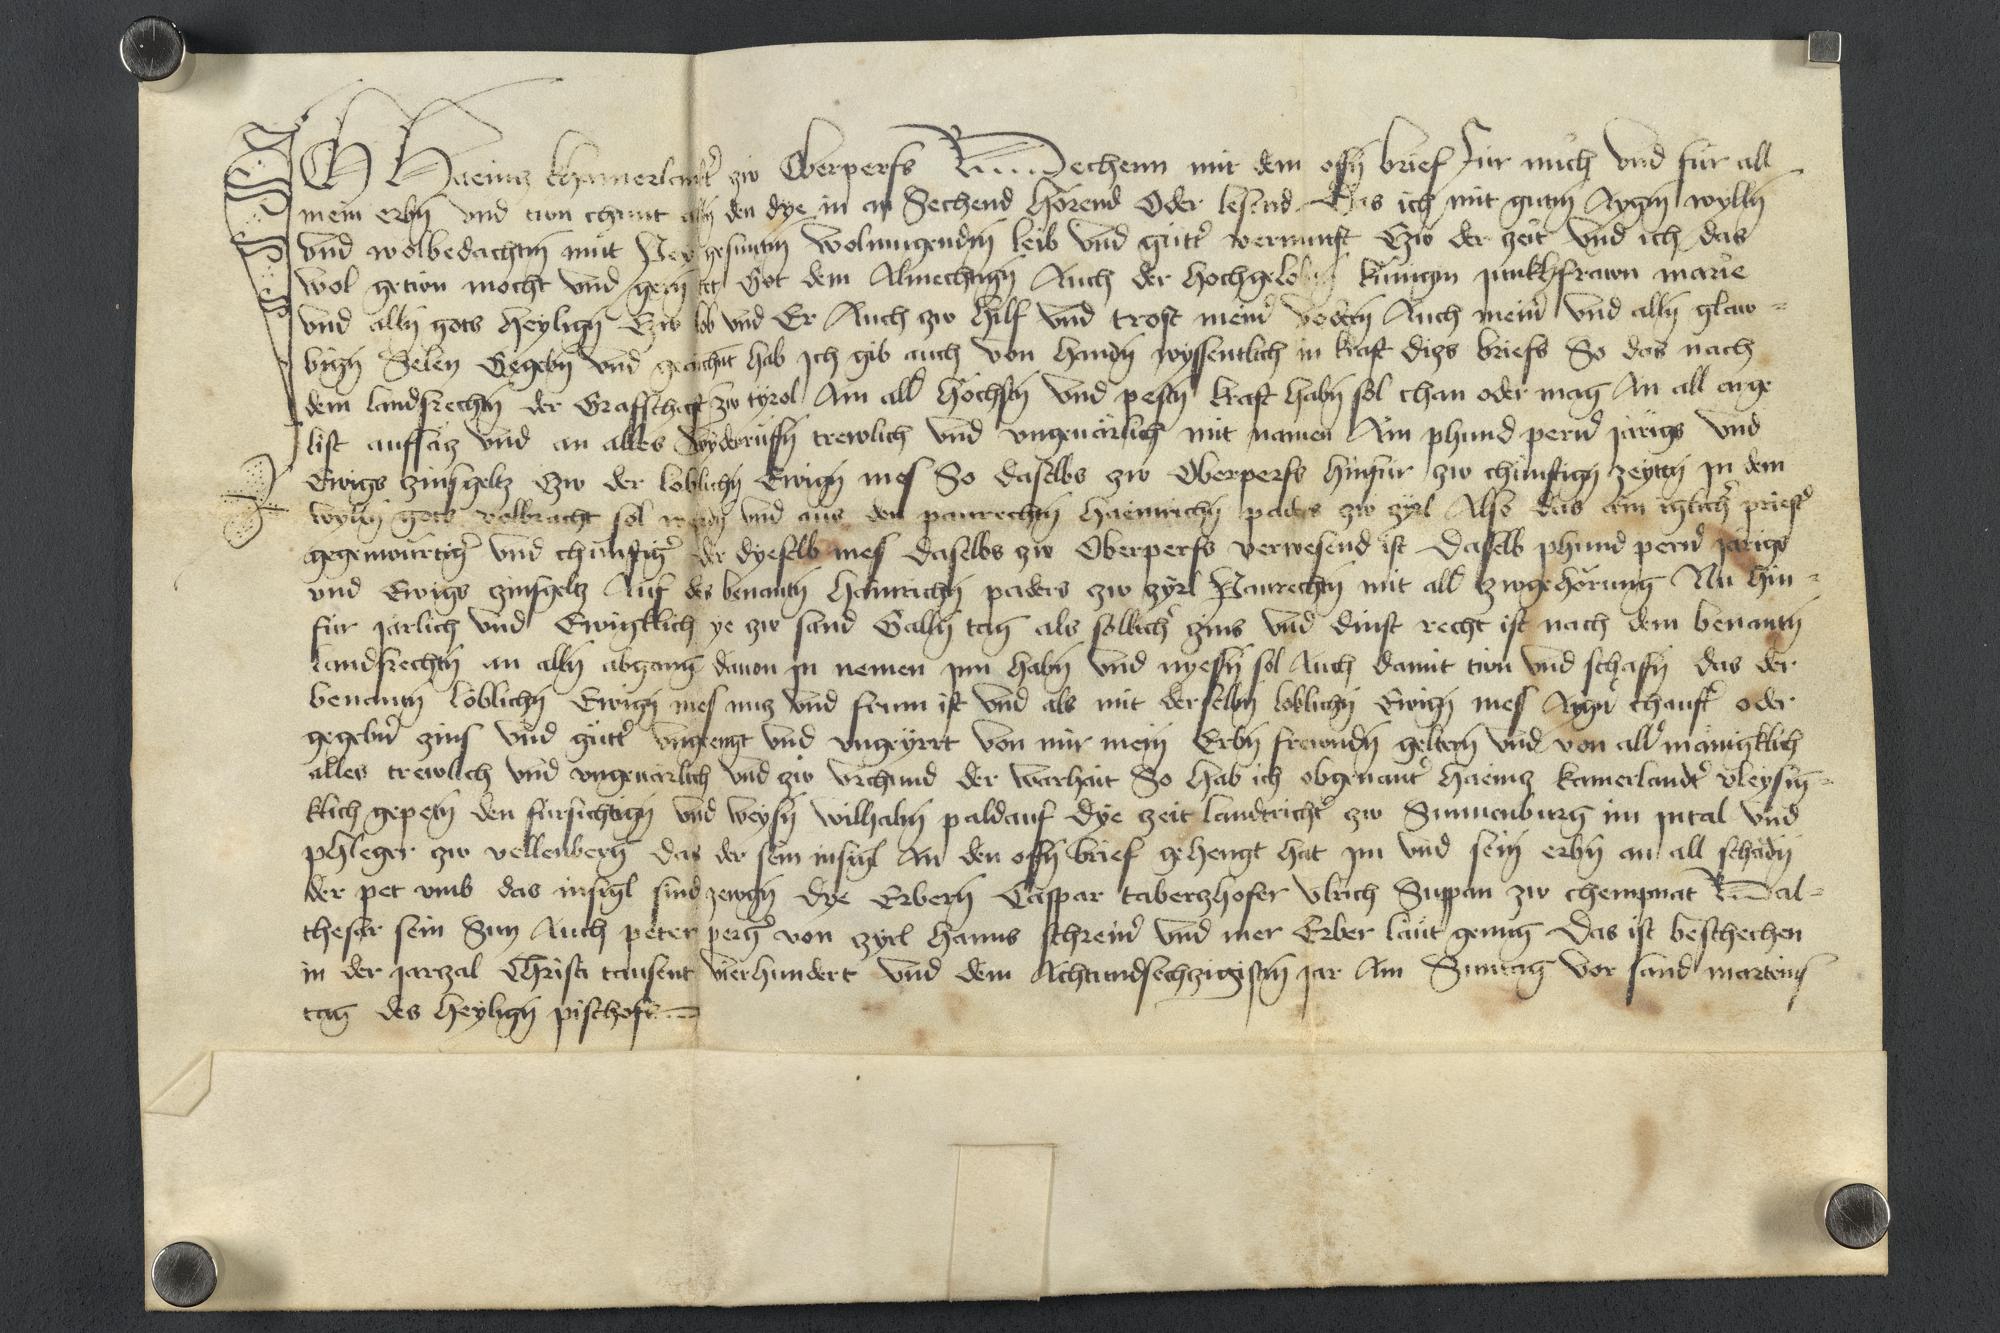 ICH Haeintz khamerlantter zw Oberperfs Bechenn mit dem offn brief Für mich vnd für all
mein erbn vnd tun chunt alln den dye in an Sechend Hörend Oder lesend Das ich mit gutn Aygn willn
vnd wolbedachtm mut Pey gesuntn Wolmugendn leib vnd guttr vernunft Czw der zeit vnd ich das
Wol getun mocht vnd Got dem Almechtign Auch der Hochgelobtn künigin junkhfrawn marie
vnd alln gots Heylign Czw lob vnd Er Auch zw Hilf vnd trost meinr vodern Auch meinr vnd alln glaw-
bign Selen Gegebn vnd gemacht hab Ich gib auch von Handn wyssentlich in kraft ditzs briefs So das nach
dem landsrechtn der Grafschaft zw tyrol Am alld Höchstn vnd pestn kraft Habn sol chan oder mag An all arge
list aufsätz vnd an alles wyderrüffn trewlich vnd vngeuärlich mit namen Ain phund pernr järigs vnd
Ewigs zinsgeltz Czw der loblichn Ewign mes So daselbs zw Oberperfs Hinfür zw chünftign zeyttn In dem
wylln gots volbracht sol werdn vnd aus den paurechtn Haeinrichn paders zw zyrl Also das ain iglichr priestr
gegenwürtigr vnd chünftigr der dyeselb mes daselbs zw Oberperfs verwesend ist Daselb phund pernr järigs
vnd Ewigs zinsgeltz Auf des benantn Hainrichn paders zw zyrl Paurechtn mit alld zwgehörung Nu Hin-
für järlich vnd Ewigklich ye zw sand Galln tag als sollichr zins vnd dinst recht ist nach dem benantn
landsrechtn an alln abgang dauon In nemen Inn Habn vnd nyessn sol Auch damit tun vnd schaffn das der
benantn löblichn Ewign mes nutz vnd frum ist vnd als mit derselbn loblichn Ewign mes Aignr chauftr oder
gegebnr zins vnd güttr vngeengt vnd vngeyrrt von mir mein Erbn frewndn geltern vnd von alld mänigklich
alles trewlich vnd vngeuärlich vnd zw vrchund der warhait So hab ich obgenantr Haeintz kamerlandtr vleysig-
klich gepetn den fürsichtign vnd weysn Wilhalm paldauf Dye zeit landtrichtr zw Sunnenburg im Intal vnd
phleger zw vellenberg Das der sein insigl An den offn brief gehengt hat Im vnd sein erbn an all schädn
der pet vmb das insigl sind zewgn Dye Erbern Caspar taberzhofer Vlrich Suppan zw chempnat Bal-
thesar sein Sun Auch peter pergr von zyrl Hanns schreinr vnd mer Erber läut genug Das ist beschechen
in der jarzal Christi tausent vierhundert vnd dem Achtundsechzigistn jar Am Suntag vor sand marteins
tag des Heylign pischofs